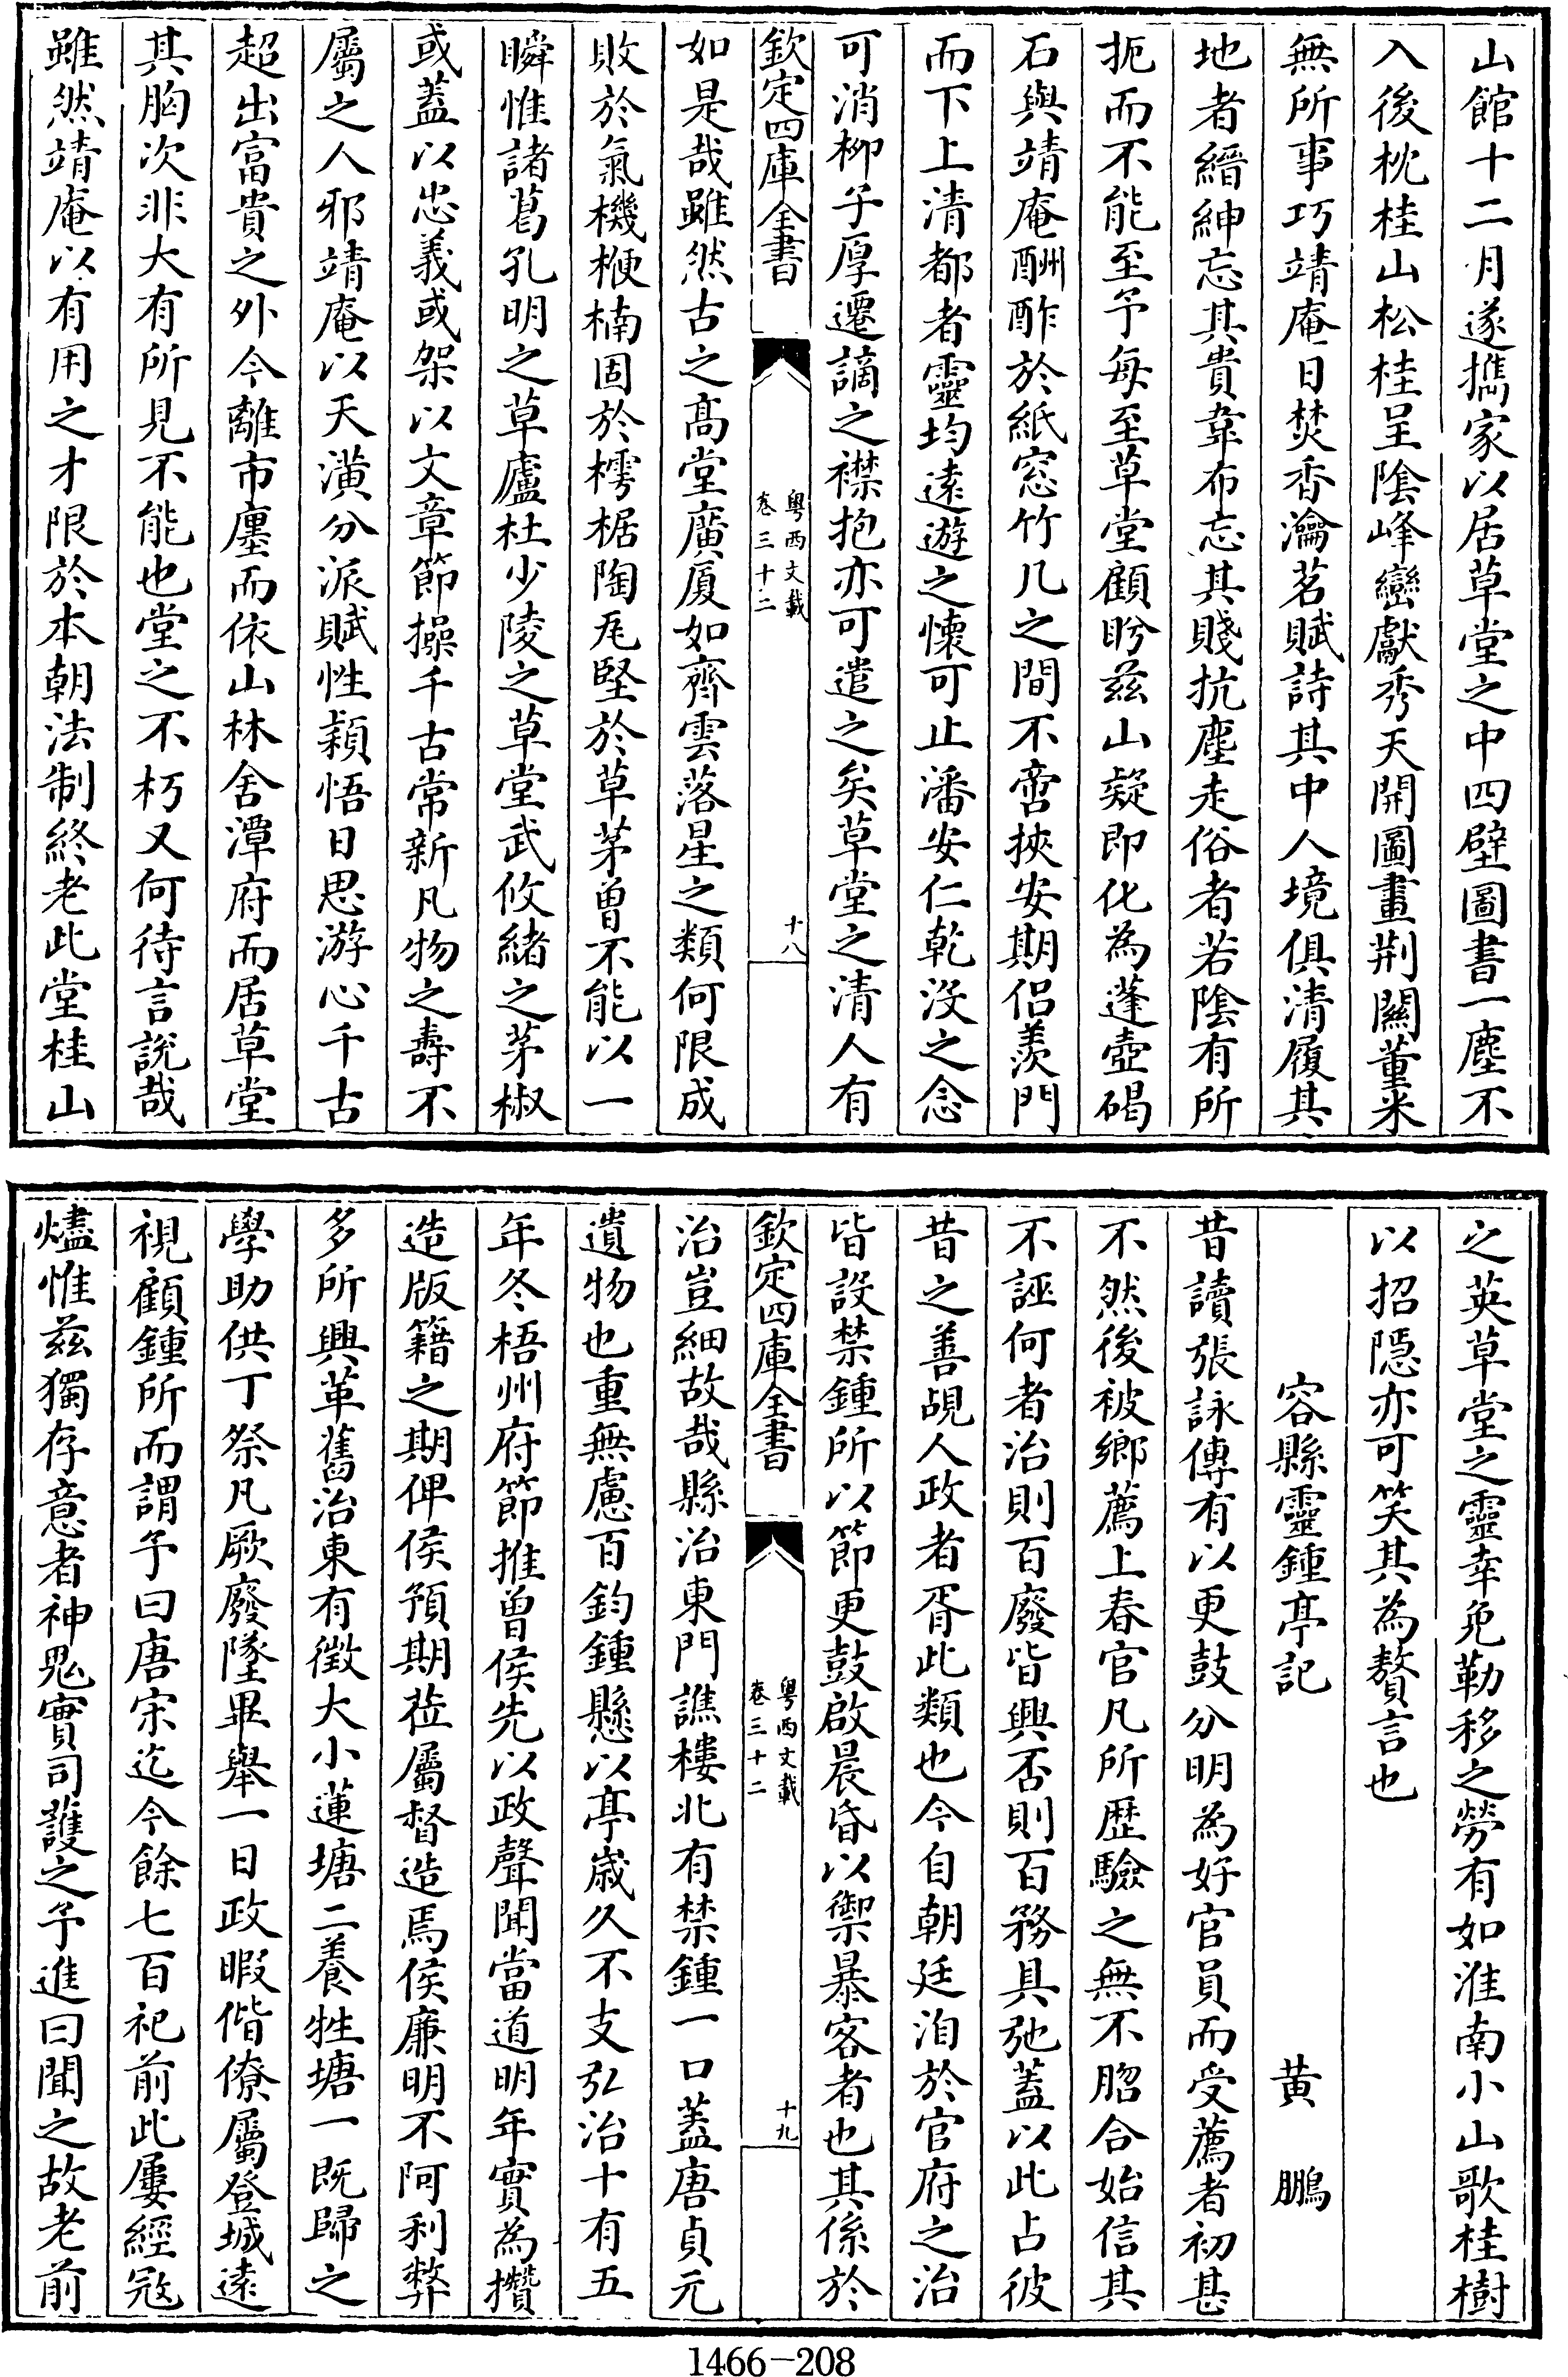 山館十二月遂攜家以居草堂之中四壁圖書一塵不
入後枕桂山松桂呈陰峰巒獻秀天開圖畫荆關董米
無所事巧靖庵日焚香瀹茗賦詩其中人境俱清履其
地者縉紳忘其貴韋布忘其賤抗塵走俗者若陰有所
扼而不能至予每至草堂顧盼兹山疑即化為蓬壺碣
石與靖庵酬酢於紙窓竹几之間不啻挾安期侣羨門
而下上清都者靈均遠遊之懷可止潘安仁乾没之念
可消柳子厚遷謫之襟抱亦可遣之矣草堂之清人有
欽定四庫全書
粤西文載
卷三十二
十八
如是哉雖然古之髙堂廣厦如齊雲落星之類何限成
敗於氣機楩楠固於樗椐陶瓦堅於草茅曽不能以一
瞬惟諸葛孔明之草廬杜少陵之草堂武攸緒之茅椒
或蓋以忠義或架以文章節操千古常新凡物之壽不
屬之人邪靖庵以天潢分派賦性穎悟日思游心千古
超出富貴之外今離市廛而依山林舍潭府而居草堂
其胸次非大有所見不能也堂之不朽又何待言說哉
雖然靖庵以有用之才限於本朝法制終老此堂桂山
之英草堂之靈幸免勒移之勞有如淮南小山歌桂樹
以招隠亦可笑其為贅言也
容縣靈鍾亭記
黄鵬
昔讀張詠傳有以更鼓分明為好官員而受薦者初甚
不然後被鄉薦上春官凡所歴驗之無不脗合始信其
不誣何者治則百廢皆興否則百務具弛蓋以此占彼
昔之善覘人政者胥此類也今自朝廷洎於官府之治
皆設禁鍾所以節更鼓啟晨昏以禦暴客者也其係於
欽定四庫全書
粤西文載
卷三十二
十九
治豈細故哉縣治東門譙樓北有禁鍾一口蓋唐貞元
遺物也重無慮百鈞鍾懸以亭歲久不支弘治十有五
年冬梧州府節推曽侯先以政聲聞當道明年實為攢
造版籍之期俾侯預期莅屬督造焉侯亷明不阿利弊
多所興革舊治東有徵大小蓮塘二養牲塘一既歸之
學助供丁祭凡厥廢墜畢舉一日政暇偕僚屬登城逺
視顧鍾所而謂予曰唐宋迄今餘七百祀前此屢經寇
燼惟兹獨存意者神鬼實司護之予進曰聞之故老前
1466-208